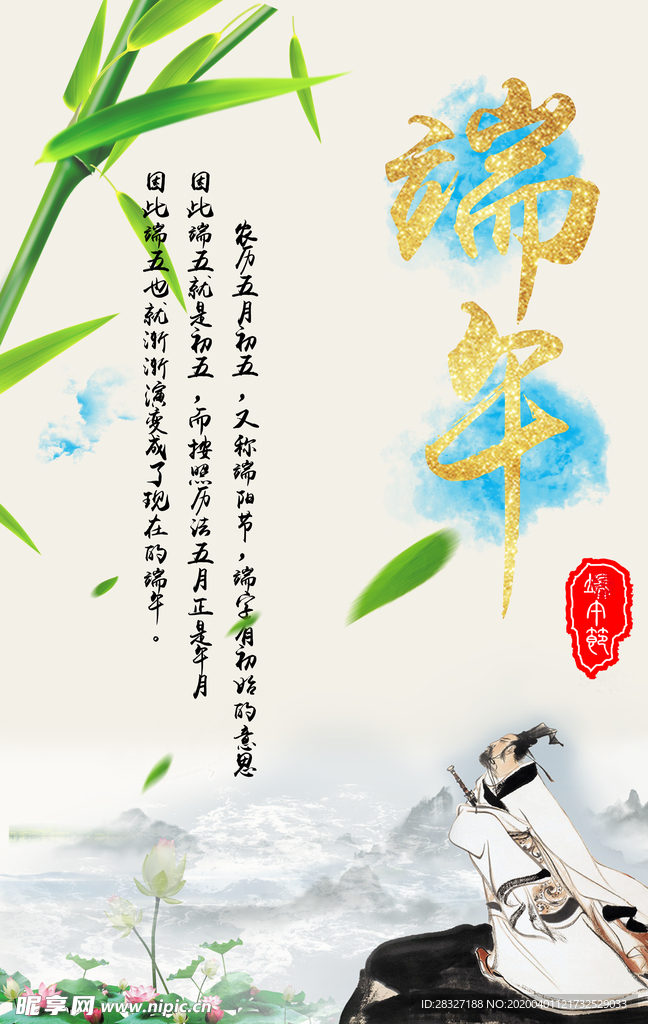 端午
端午節
农历五月初五，又称端阳节，端字有初始的意思
因此端五就是初五，而按照历法五月正是午月
因此端五也就渐渐演变成了现在的端午。
昵享网 www.nipic.cn
ID:28327188 NO:20200401121732529033